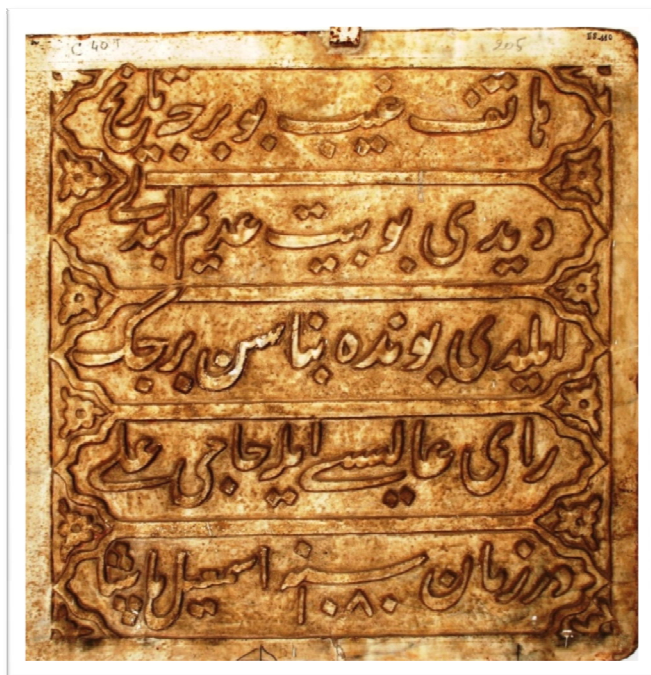 C 40T 205 EE.110
هاتف غيب بو برجه تاريخ
ديدى بو بيت عديم البدلى
ايلدى بونده بناسن برجك
راى عاليسى ايله حاجى على
در زمان اسمعيل پاشا سنه ١٠٨٠